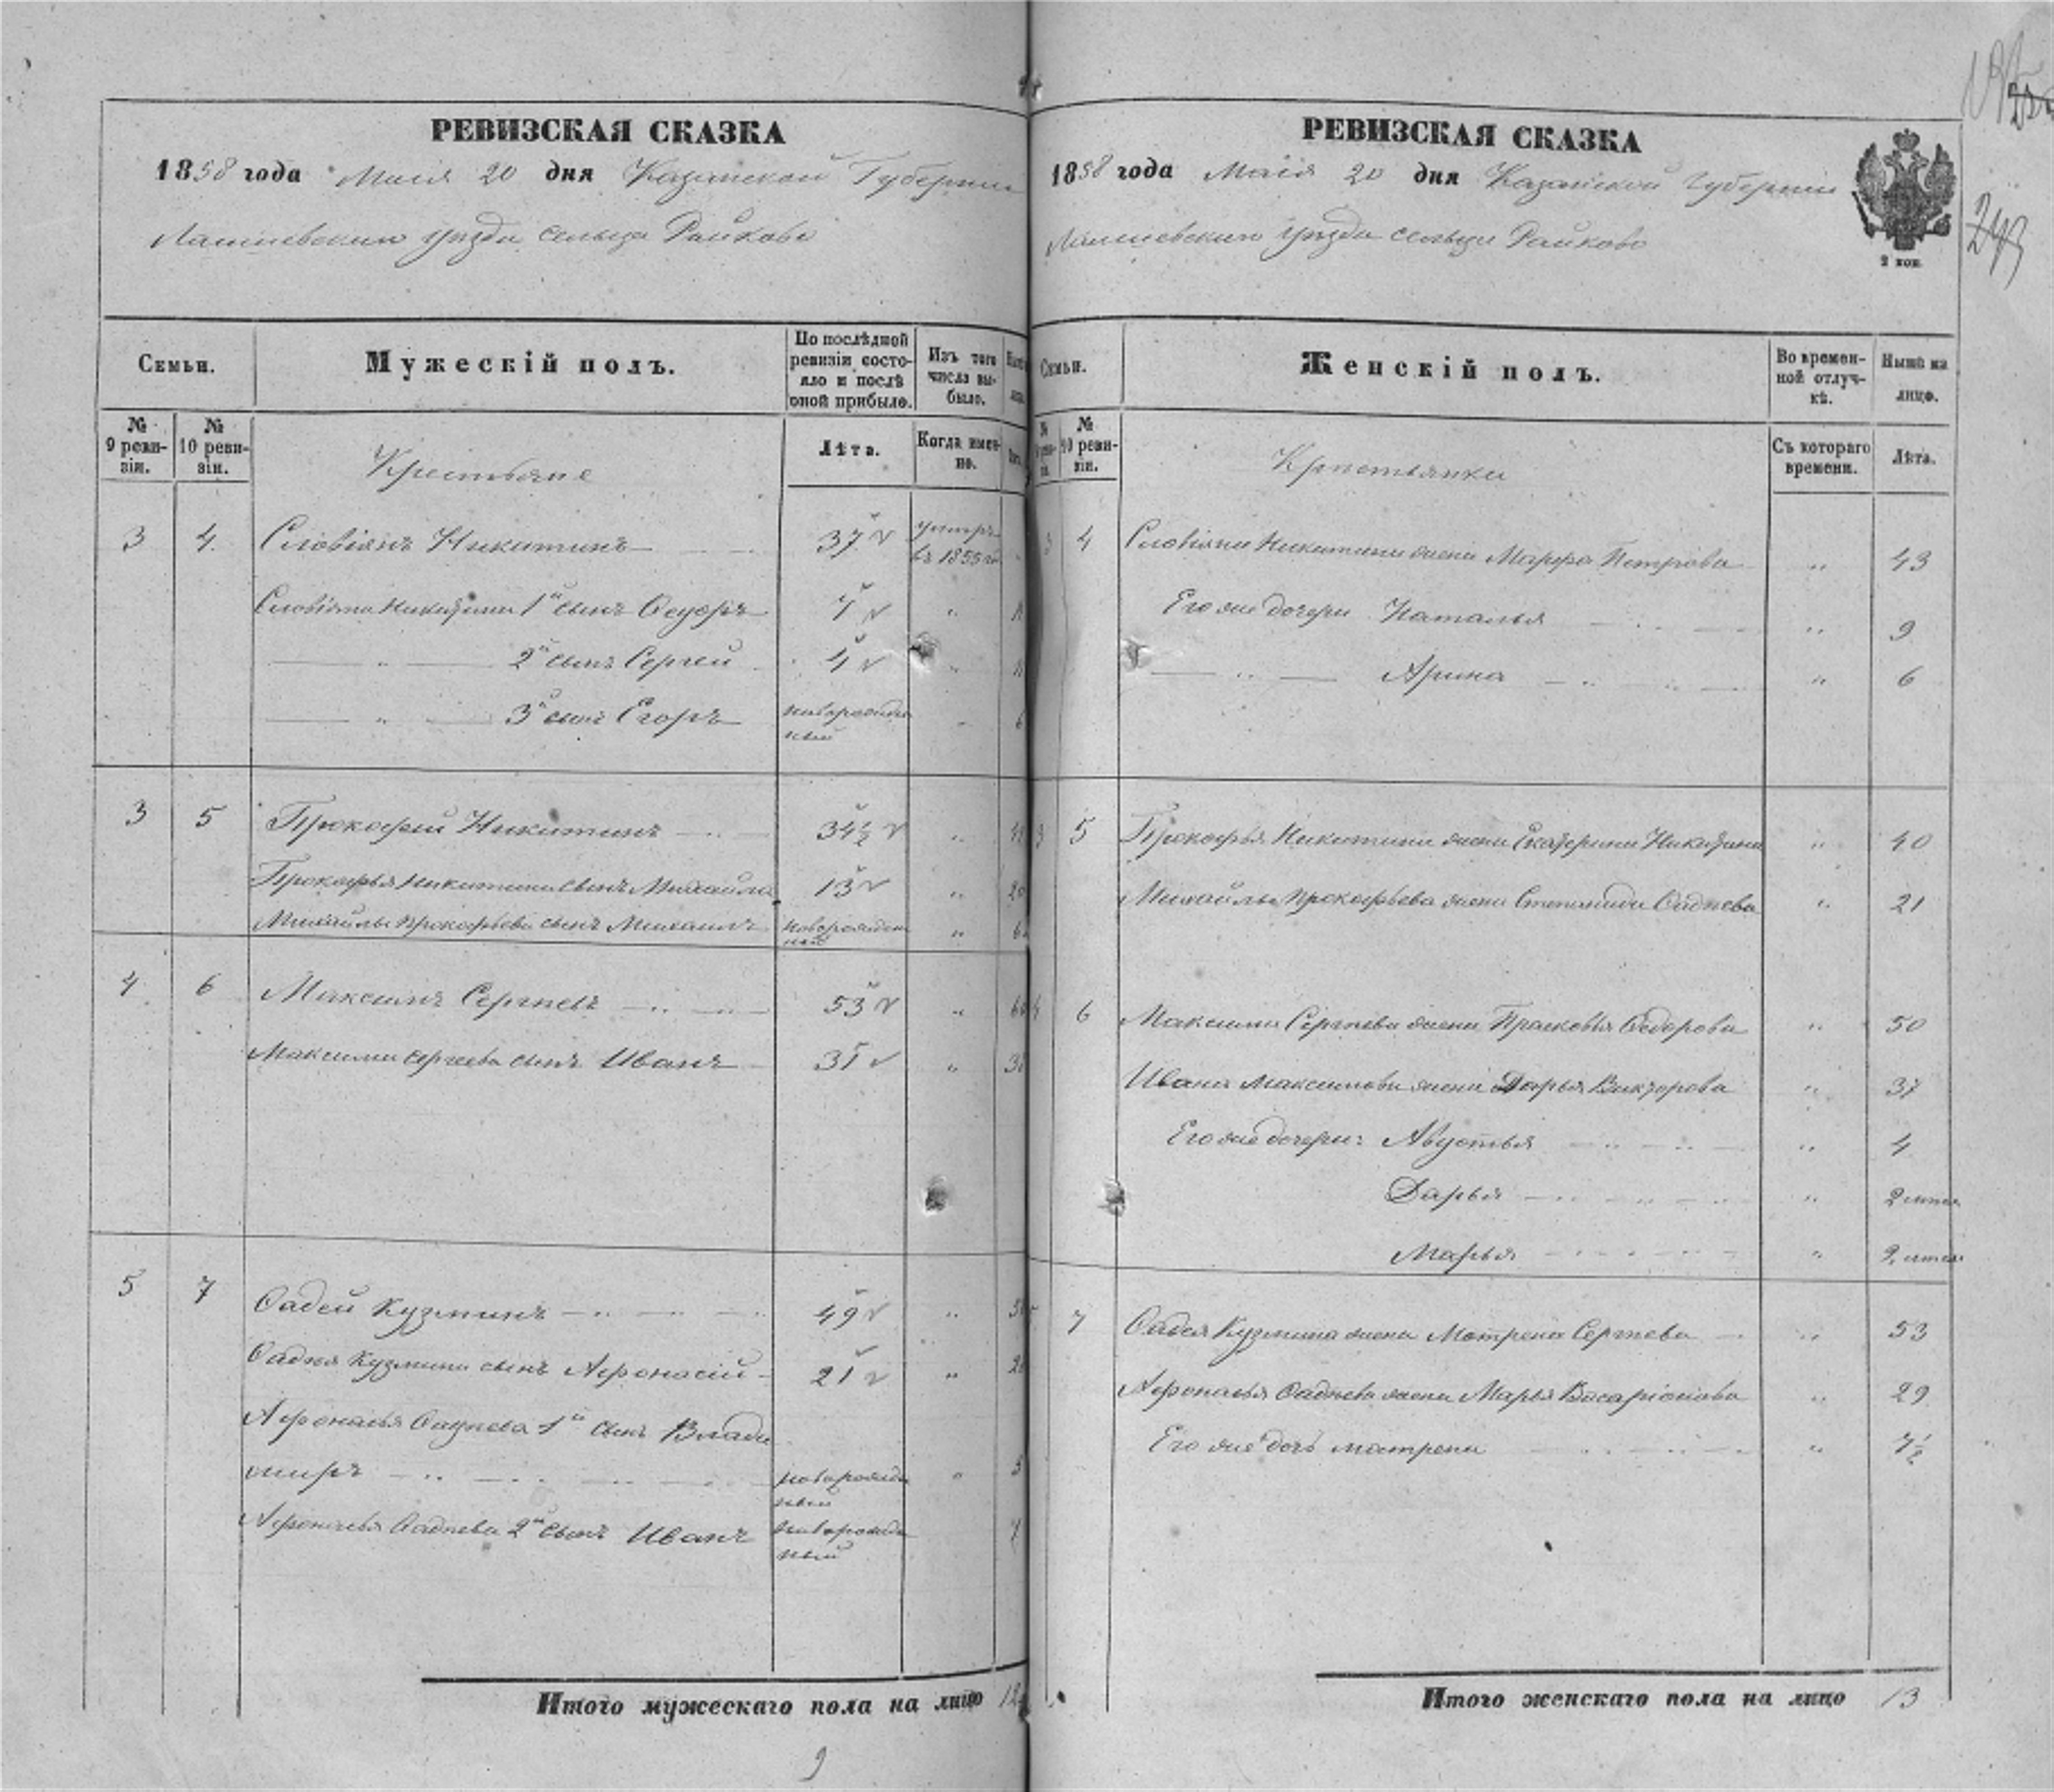 РЕВИЗСКАЯ СКАЗКА
1858 года Маія 20 дня Казанской Губерніи
Лаишевскаго уѣзда сельца Райково
Семьи.
Мужескій полъ.
По послѣдней ревизіи состояло и послѣ оной прибыло.
Изъ того числа выбыло.
№ 9 ревизіи.
№ 10 ревизіи.
Крестьяне
Лѣта.
Когда именно.
3 4 Никитинъ 37 умеръ въ 1855 го
Никитина 1й сынъ Ѳедоръ 7 "
" 2й сынъ Сергей 4 "
" 3й сынъ Егоръ новорожденный "
3 5 Прокофий Никитинъ 34½ "
Прокофья Никитина сынъ Михайла 13 "
Михайлы Прокофьева сынъ Михаилъ новорожденный "
4 6 Максимъ Сергѣевъ 53 "
Максима Сергеева сынъ Иванъ 31 "
5 7 Фадей Кузминъ 49 "
Фадея Кузмина сынъ Афонасій 21 "
Афонасья Фадѣева 1й сынъ Влади
миръ новорожденный "
Афонасья Фадѣева 2й сынъ Иванъ новорожденный
Итого мужескаго пола на лицо 12
9
РЕВИЗСКАЯ СКАЗКА
1858 года Маія 20 дня Казанской Губерніи
Лаишевскаго уѣзда сельца Райково
2 коп.
243
Семьи.
Женскій полъ.
Во временной отлучкѣ.
Нынѣ на лицо.
№ 10 ревизіи.
Крестьянки
Съ котораго времени.
Лѣта.
4 Никитина жена Марфа Петрова " 43
Его же дочери Наталья " 9
" Арина " 6
5 Прокофья Никитина жена Екатерина Никитина " 40
Михайлы Прокофьева жена Степанида Фадѣева " 21
6 Максима Сергѣева жена Прасковья Ѳедорова " 50
Ивана Максимова жена Дарья Викторова " 37
Его же дочери: Авдотья " 4
Дарья "
Марья "
7 Фадея Кузмина жена Матрена Сергѣева " 53
Афонасья Фадѣева жена Марья Висаріонова " 29
Его же дочь Матрена " 7½
Итого женскаго пола на лицо 13